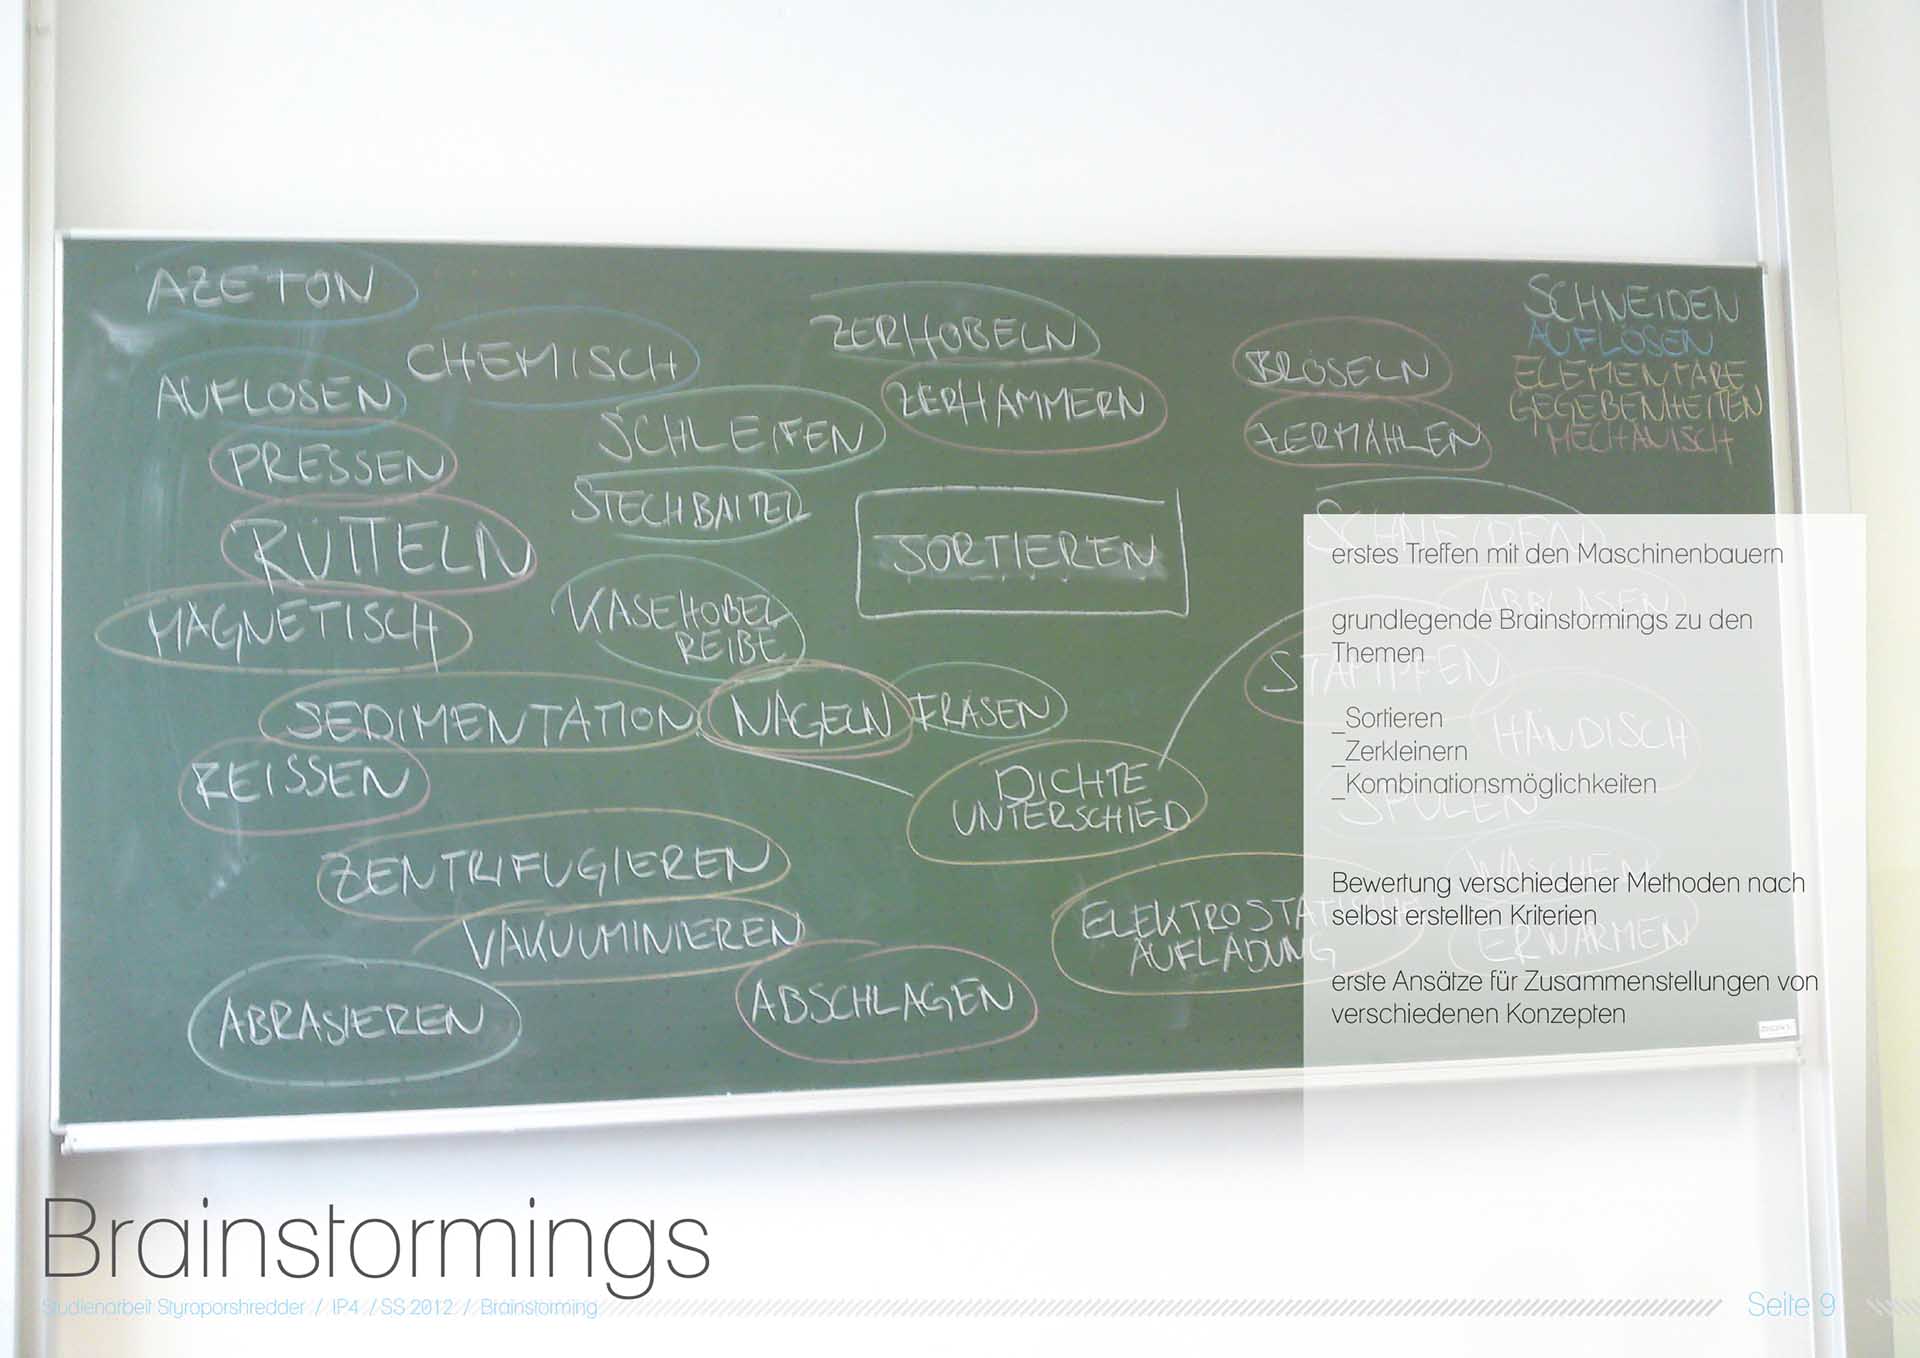 AZETON
CHEMISCH
AUFLÖSEN
PRESSEN
RÜTTELN
MAGNETISCH
SCHLEIFEN
STECHBAITEL
KÄSEHOBEL
REIBE
ZERHOBELN
ZERHÄMMERN
SORTIEREN
BRÖSELN
ZERMAHLEN
SCHNEIDEN
AUFLÖSEN
ELEMENTARE
GEGEBENHEITEN
MECHANISCH
SCHNEIDEN
ABBLASEN
STAMPFEN
HÄNDISCH
SPÜLEN
WASCHEN
ERWÄRMEN
SEDIMENTATION
NAGELN
FRÄSEN
REISSEN
DICHTE
UNTERSCHIED
ZENTRIFUGIEREN
VAKUUMINIEREN
ELEKTROSTATISCHE
AUFLADUNG
ABRASIEREN
ABSCHLAGEN
erstes Treffen mit den Maschinenbauern
grundlegende Brainstormings zu den
Themen
_Sortieren
_Zerkleinern
_Kombinationsmöglichkeiten
Bewertung verschiedener Methoden nach
selbst erstellten Kriterien
erste Ansätze für Zusammenstellungen von
verschiedenen Konzepten
Brainstormings
Studienarbeit Styroporshredder / IP4 / SS 2012 / Brainstorming
Seite 9